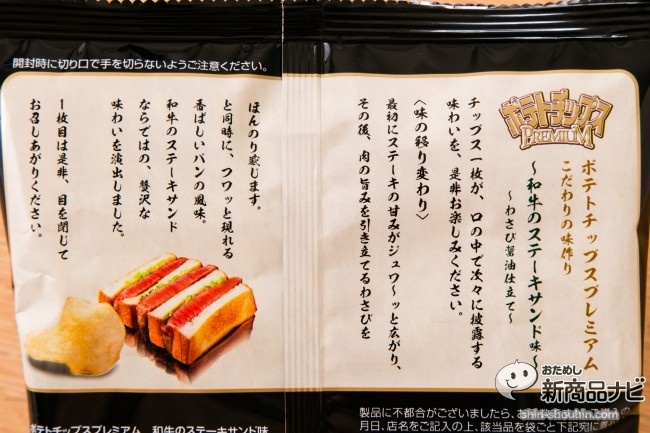 開封時に切り口で手を切らないようご注意ください。
ポテトチップス
PREMIUM
ポテトチップスプレミアム
こだわりの味作り
~和牛のステーキサンド味~
~わさび醤油仕立て~
チップス一枚が、口の中で次々に披露する
味わいを、是非お楽しみください。
〈味の移り変わり〉
最初にステーキの甘みがジュワ~ッと広がり、
その後、肉の旨みを引き立てるわさびを
ほんのり感じます。
と同時に、フワッと現れる
香ばしいパンの風味。
和牛のステーキサンド
ならではの、贅沢な
味わいを演出しました。
1枚目は是非、目を閉じて
お召しあがりください。
ポテトチップスプレミアム 和牛のステーキサンド味
製品に不都合がございましたら、お
月日、店名をご記入の上、該当品を袋ごと下記宛に
おためし
新商品ナビ
shin-shouhin.com